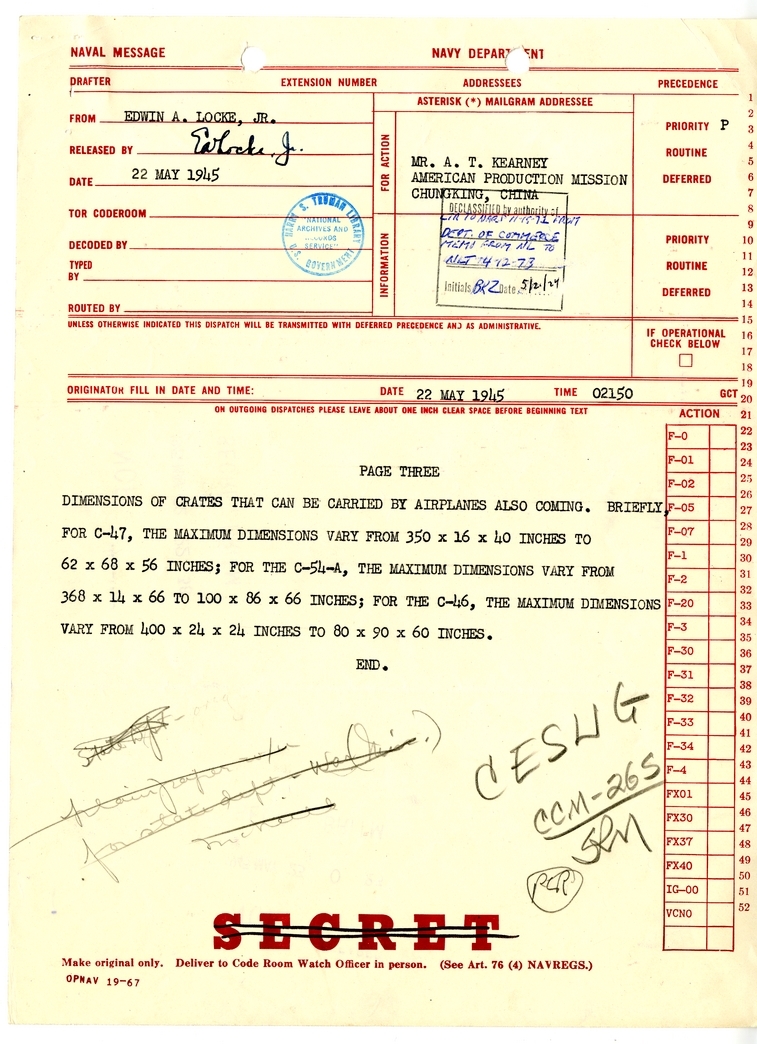 NAVAL MESSAGE NAVY DEPARTMENT
DRAFTER EXTENSION NUMBER ADDRESSEES PRECEDENCE
FROM EDWIN A. LOCKE, JR.
RELEASED BY EALocke, Jr.
DATE 22 MAY 1945
TOR CODEROOM
DECODED BY
TYPED
BY
ROUTED BY
ASTERISK (*) MAILGRAM ADDRESSEE
FOR ACTION
MR. A. T. KEARNEY
AMERICAN PRODUCTION MISSION
CHUNGKING, CHINA
INFORMATION
HARRY S. TRUMAN LIBRARY
"NATIONAL
ARCHIVES AND
RECORDS
SERVICE"
U.S. GOVERNMENT
DECLASSIFIED by authority of
DEPT. OF COMMERCE
MEMO FROM NL TO
NLT 4-12-73
Initials BKZ Date 5/2/74
PRIORITY P
ROUTINE
DEFERRED
PRIORITY
ROUTINE
DEFERRED
UNLESS OTHERWISE INDICATED THIS DISPATCH WILL BE TRANSMITTED WITH DEFERRED PRECEDENCE AND AS ADMINISTRATIVE.
IF OPERATIONAL
CHECK BELOW
ORIGINATOR FILL IN DATE AND TIME: DATE 22 MAY 1945 TIME 02150 GCT
ON OUTGOING DISPATCHES PLEASE LEAVE ABOUT ONE INCH CLEAR SPACE BEFORE BEGINNING TEXT
PAGE THREE
DIMENSIONS OF CRATES THAT CAN BE CARRIED BY AIRPLANES ALSO COMING. BRIEFLY,
FOR C-47, THE MAXIMUM DIMENSIONS VARY FROM 350 x 16 x 40 INCHES TO
62 x 68 x 56 INCHES; FOR THE C-54-A, THE MAXIMUM DIMENSIONS VARY FROM
368 x 14 x 66 TO 100 x 86 x 66 INCHES; FOR THE C-46, THE MAXIMUM DIMENSIONS
VARY FROM 400 x 24 x 24 INCHES TO 80 x 90 x 60 INCHES.
END.
State Dept - orig
plain paper
for state dept -
CESWG
CCM-265
SRM
PCR
SECRET
Make original only. Deliver to Code Room Watch Officer in person. (See Art. 76 (4) NAVREGS.)
OPNAV 19-67
ACTION
F-0
F-01
F-02
F-05
F-07
F-1
F-2
F-20
F-3
F-30
F-31
F-32
F-33
F-34
F-4
FX01
FX30
FX37
FX40
IG-00
VCNO
1
2
3
4
5
6
7
8
9
10
11
12
13
14
15
16
17
18
19
20
21
22
23
24
25
26
27
28
29
30
31
32
33
34
35
36
37
38
39
40
41
42
43
44
45
46
47
48
49
50
51
52